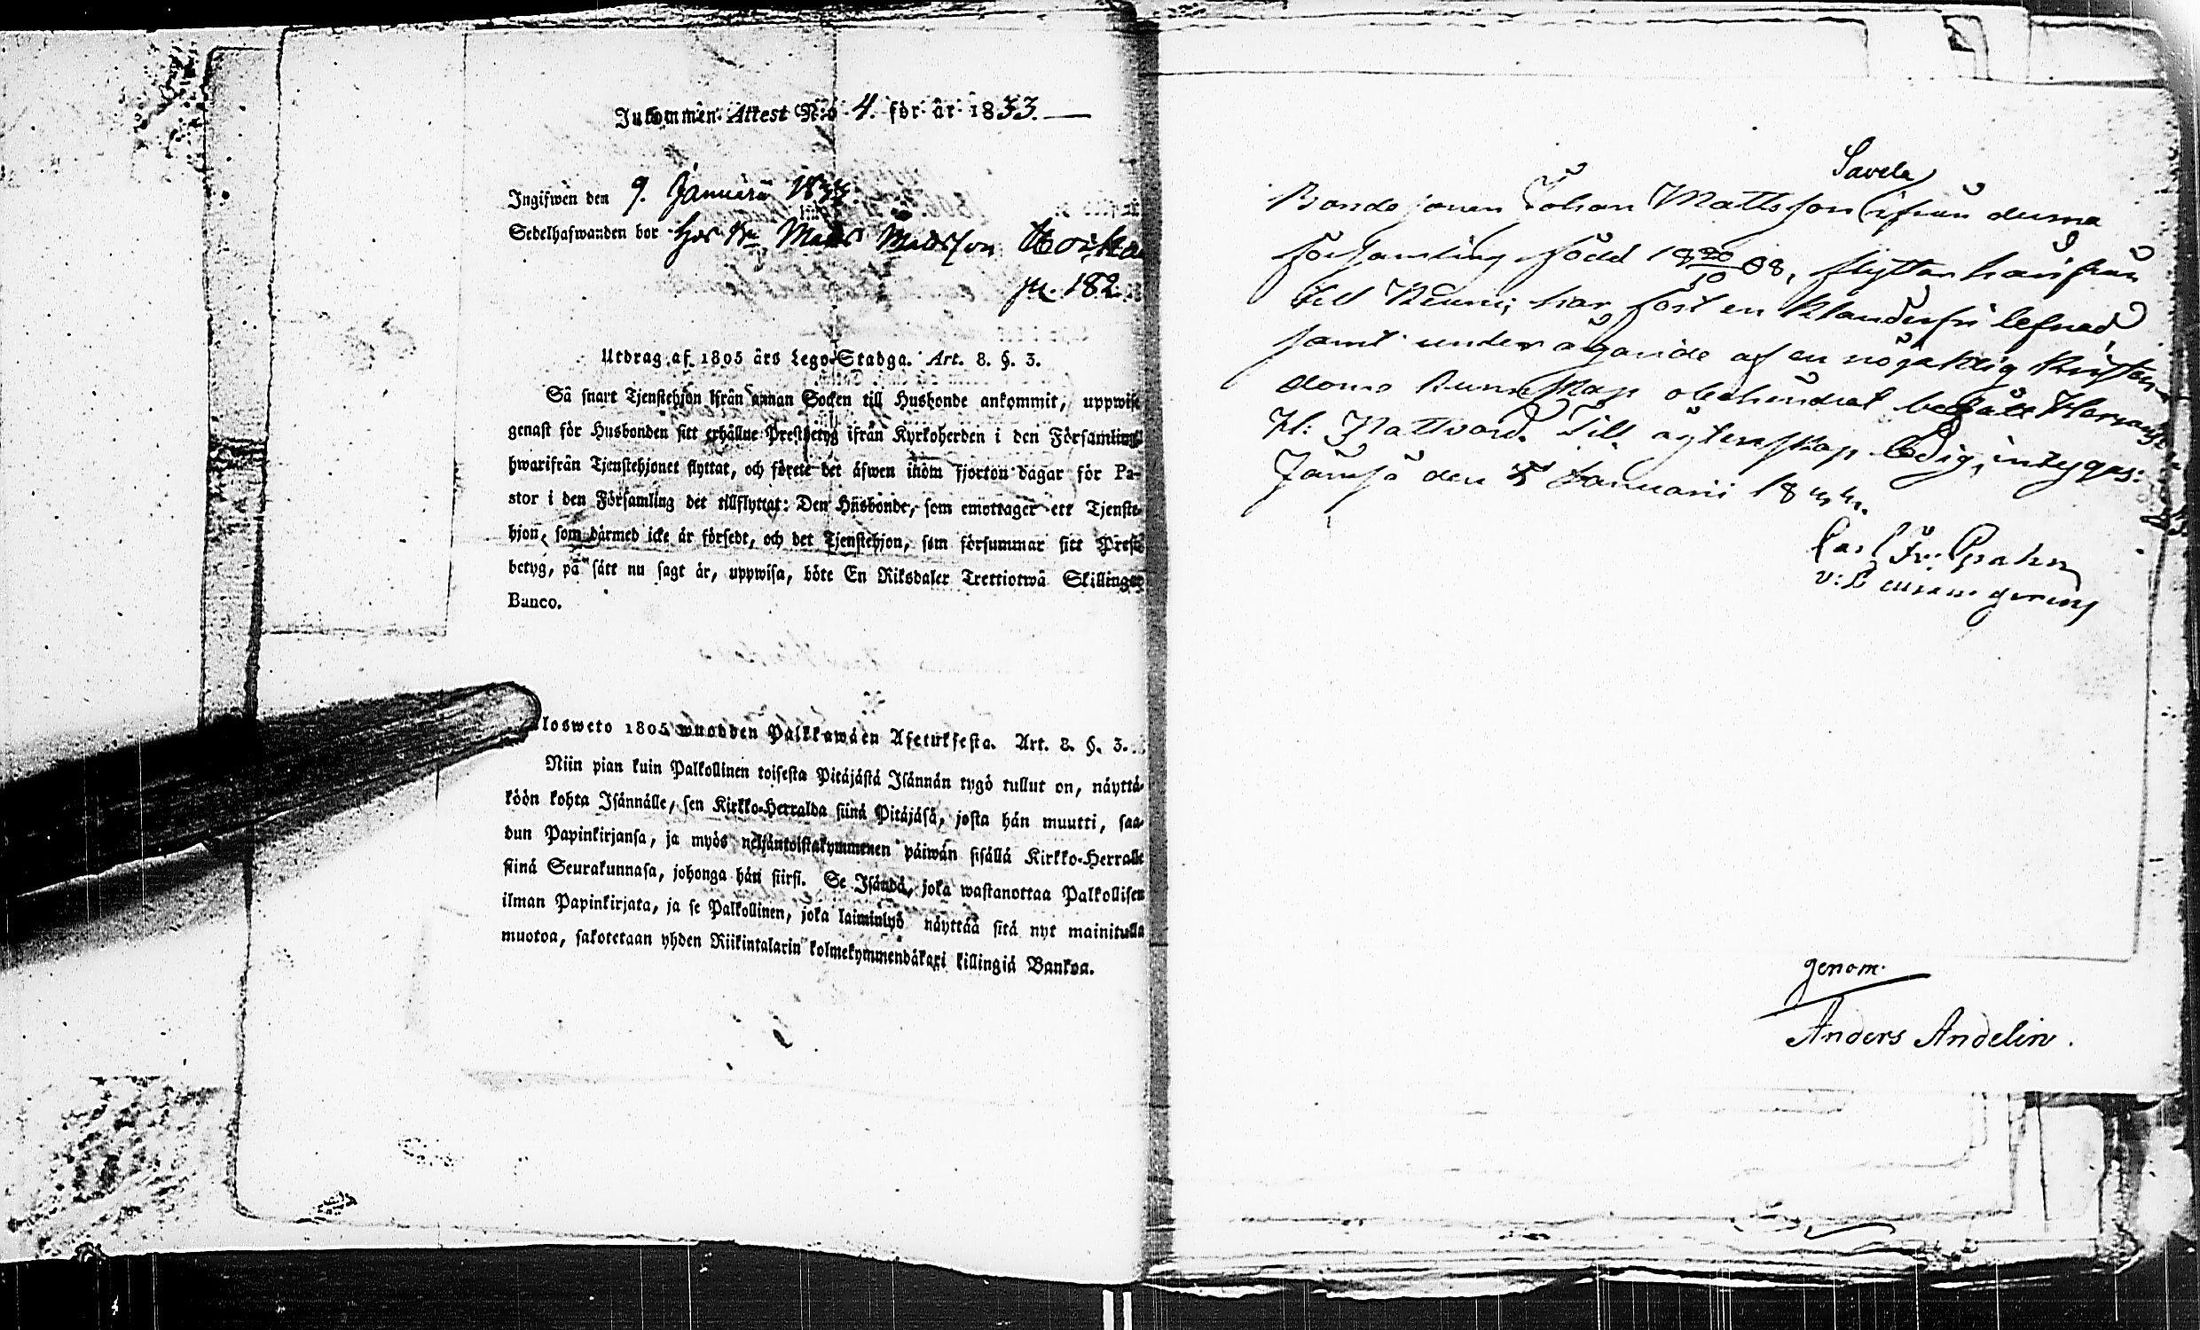 Inkommen Attest N:o 4. för år 1833.
Ingifwen den 9. Januarii 1833.
Sedelhafwanden bor hos Bn Matts Mattsson
p. 182.
Utdrag af 1805 års Lego-Stadga. Art. 8. §. 3.
Så snart Tjenstehjon ifrån annan Socken till Husbonde ankommit, uppwise
genast för Husbonden sitt erhållne Prestbetyg ifrån Kyrkoherden i den Församling
hwarifrån Tjenstehjonet flyttat, och förete det äfwen inom fjorton dagar för Pa-
stor i den Församling det tillflyttat: Den Husbonde, som emottager ett Tjenste-
hjon, som därmed icke är försedt, och det Tjenstehjon, som försummar sitt Prest-
betyg, på sätt nu sagt är, uppwisa, böte En Riksdaler Trettiotwå Skillingar
Banco.
losweto 1805 wuodden Palkkawäen Asetuksesta. Art. 8. §. 3.
Niin pian kuin Palkollinen toisesta Pitäjästä Isännän tygö tullut on, näyttä-
köön kohta Isännälle, sen Kirkko-Herralda siinä Pitäjäsä, josta hän muutti, saa-
dun Papinkirjansa, ja myös neljäntoistakymmenen päiwän sisällä Kirkko-Herralle
siinä Seurakunnasa, johonga hän siirsi. Se Isändä, joka wastanottaa Palkollisen
ilman Papinkirjata, ja se Palkollinen, joka laiminlyö näyttää sitä nyt mainitulla
muotoa, sakotetaan yhden Riikintalarin kolmekymmendäkaxi killingiä Bankoa.
Savela
Bondesonen Johan Mattsson ifrån denna
församling född 18 20/10 08, flyttar härifrån
till har fört en klanderfri lefnad
samt under ägande af en nöjaktig kristen-
doms kunskap obehindrat begått
H: Nattvard. Till äktenskap ledig, intygas:
Jämsä den Januarii 1833.
Carl Fr: Grahn
genom
Anders Andelin.